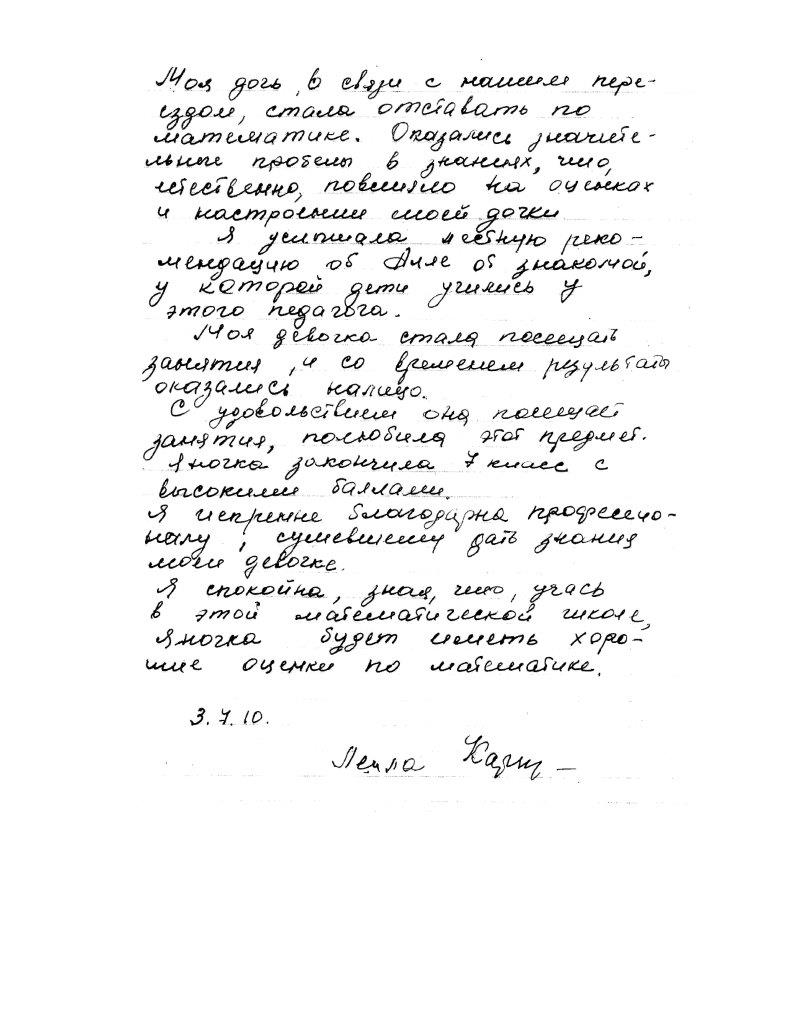 Моя дочь, в связи с нашим пере-
ездом, стала отставать по
математике. Оказались значите-
льные пробелы в знаниях, что,
естественно, повлияло на оценках
и настроении моей дочки
Я услышала лестную реко-
мендацию об Алле от знакомой,
у которой дети учились у
этого педагога.
Моя девочка стала посещать
занятия, и со временем результаты
оказались налицо.
С удовольствием она посещает
занятия, полюбила этот предмет.
Яночка закончила 7 класс с
высокими баллами.
Я искренне благодарна профессио-
налу, сумевшему дать знания
моей девочке.
Я спокойна, зная, что, учась
в этой математической школе,
Яночка будет иметь хоро-
шие оценки по математике.
3.7.10.
Лейла